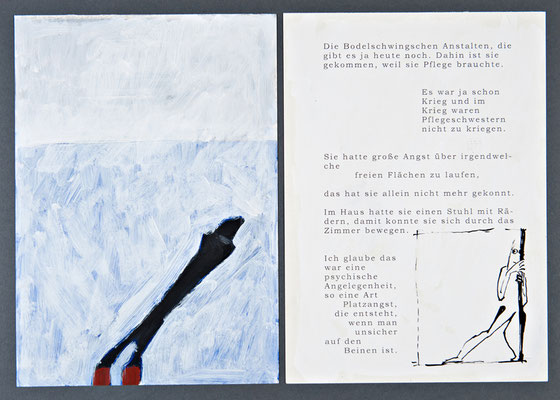 Die Bodelschwingschen Anstalten, die
gibt es ja heute noch. Dahin ist sie
gekommen, weil sie Pflege brauchte.
Es war ja schon
Krieg und im
Krieg waren
Pflegeschwestern
nicht zu kriegen.
Sie hatte große Angst über irgendwel-
che
freien Flächen zu laufen,
das hat sie allein nicht mehr gekonnt.
Im Haus hatte sie einen Stuhl mit Rä-
dern, damit konnte sie sich durch das
Zimmer bewegen.
Ich glaube das
war eine
psychische
Angelegenheit,
so eine Art
Platzangst,
die entsteht,
wenn man
unsicher
auf den
Beinen ist.